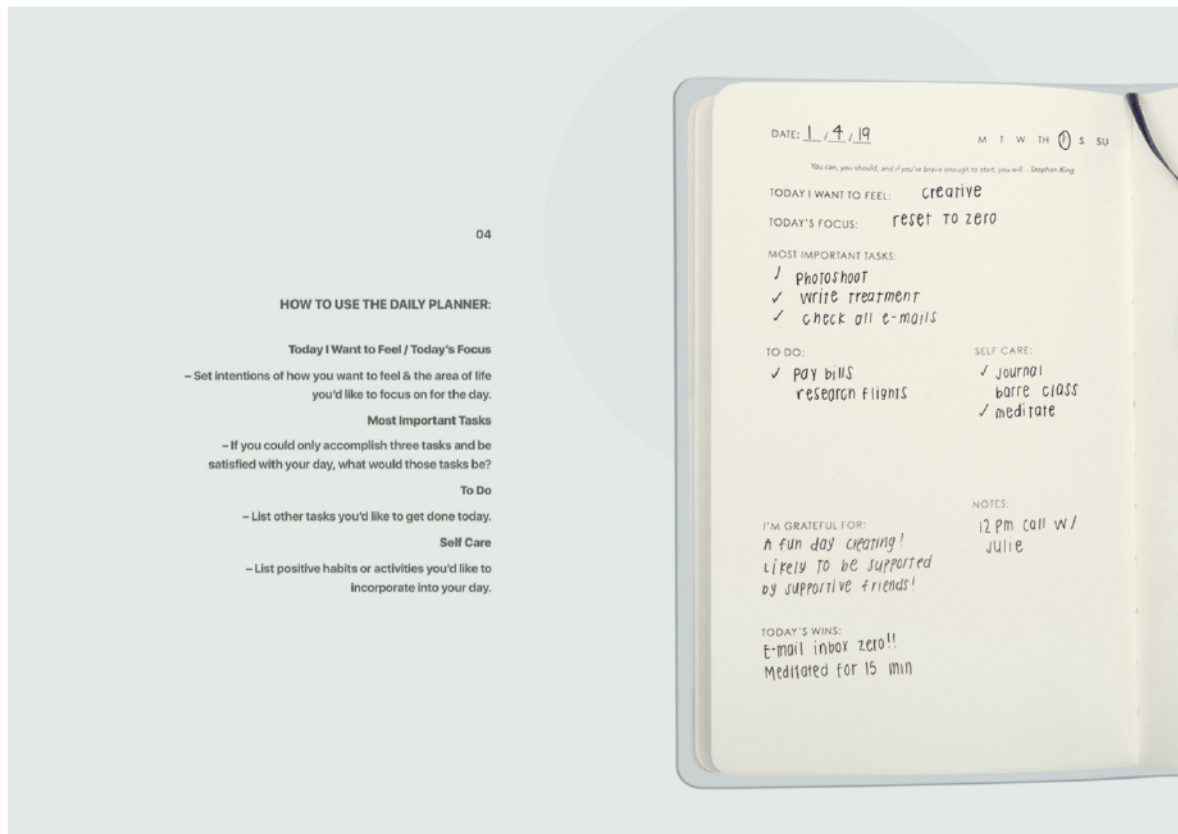 04
HOW TO USE THE DAILY PLANNER:
Today I Want to Feel / Today's Focus
– Set intentions of how you want to feel & the area of life
you'd like to focus on for the day.
Most Important Tasks
– If you could only accomplish three tasks and be
satisfied with your day, what would those tasks be?
To Do
– List other tasks you'd like to get done today.
Self Care
– List positive habits or activities you'd like to
incorporate into your day.
DATE: 1 / 4 / 19
M T W TH F S SU
You can, you should, and if you're brave enough to start, you will. - Stephen King
TODAY I WANT TO FEEL: creative
TODAY'S FOCUS: reset to zero
MOST IMPORTANT TASKS:
✓ Photoshoot
✓ write treatment
✓ check all e-mails
TO DO:
✓ pay bills
research flights
SELF CARE:
✓ journal
barre class
✓ meditate
NOTES:
12 pm call w/
Julie
I'M GRATEFUL FOR:
A fun day creating!
Likely to be supported
by supportive friends!
TODAY'S WINS:
E-mail inbox zero!!
Meditated for 15 min